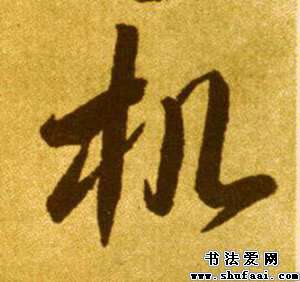 机
书法爱网
www.shufaai.com